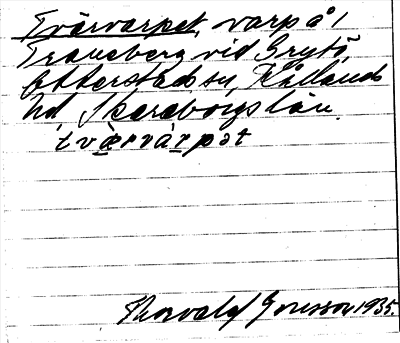 Tvärvarpet, varp å/
Traneberg vid Brytö,
Otterstads sn, Kållands
hd, Skaraborgs län.
tvæ̀rvàrpət
Thorvald Jonsson 1935.